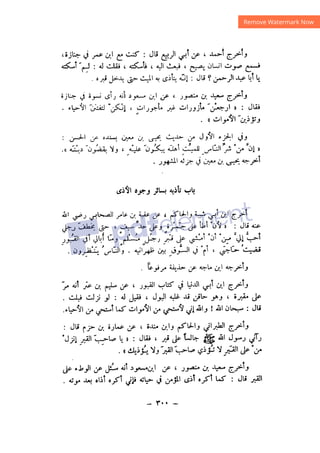 Remove Watermark Now
وأخرج أحمد ، عن أبي الربيع قال : كنت مع ابن عمر في جنازة،
فسمع صوت انسان يصيح ، فبعث اليه ، فأسكته ، فقلت له : لِمَ أسكته
يا أبا عبد الرحمن ؟ قال : إنّه يتأذى به الميت حتى يدخل قبره .
وأخرج سعيد بن منصور ، عن ابن مسعود أنه رأى نسوة في جنازة
فقال : « ارجعنَ مأزورات غير مأجورات ، إنكنّ لتفتنّ الأحياء .
وتؤذينَ الأموات » .
وفي الجزء الأول من حديث يحيى بن معين بسنده عن الحسن :
« إنَّ من شرّ الناس للميّت أهله يبكون عليه ، ولا يقضون دينه » .
أخرجه يحيى بن معين في جزئه المشهور .
باب تأذيه بسائر وجوه الأذى
أخرج ابن أبي شيبة والحاكم ، عن عقبة بن عامر الصحابي رضي الله
عنه قال : « لأن أطأ على جمرة وعلى حد سيف ، حتى تخطف رجلي
أحبّ إليّ من أن أمشي على قبر رجل مسلم وما أبالي أفي القبور
قضيتُ حاجتي ، أم في السوق بين ظهرانيه . والناس ينظرون .
وأخرجه ابن ماجه عن حذيفة مرفوعاً .
وأخرج ابن أبي الدنيا في كتاب القبور ، عن سليم بن عتر أنه مرّ
على مقبرة ، وهو حاقن قد غلبه البول ، فقيل له : لو نزلت فبلت .
قال : سبحان الله ! والله إني لأستحي من الأموات كما أستحي من الأحياء.
وأخرج الطبراني والحاكم وابن مندة ، عن عمارة بن حزم قال :
رآني رسول الله ﷺ جالساً على قبر ، فقال : « يا صاحب القبر إنزل
من على القبر لا تؤذي صاحب القبر ولا يؤذيك » .
وأخرج سعيد بن منصور ، عن ابن مسعود أنه سئل عن الوطء على
القبر قال : كما أكره أذى المؤمن في حياته فإني أكره أذاه بعد موته .
– ٣٠٠ –